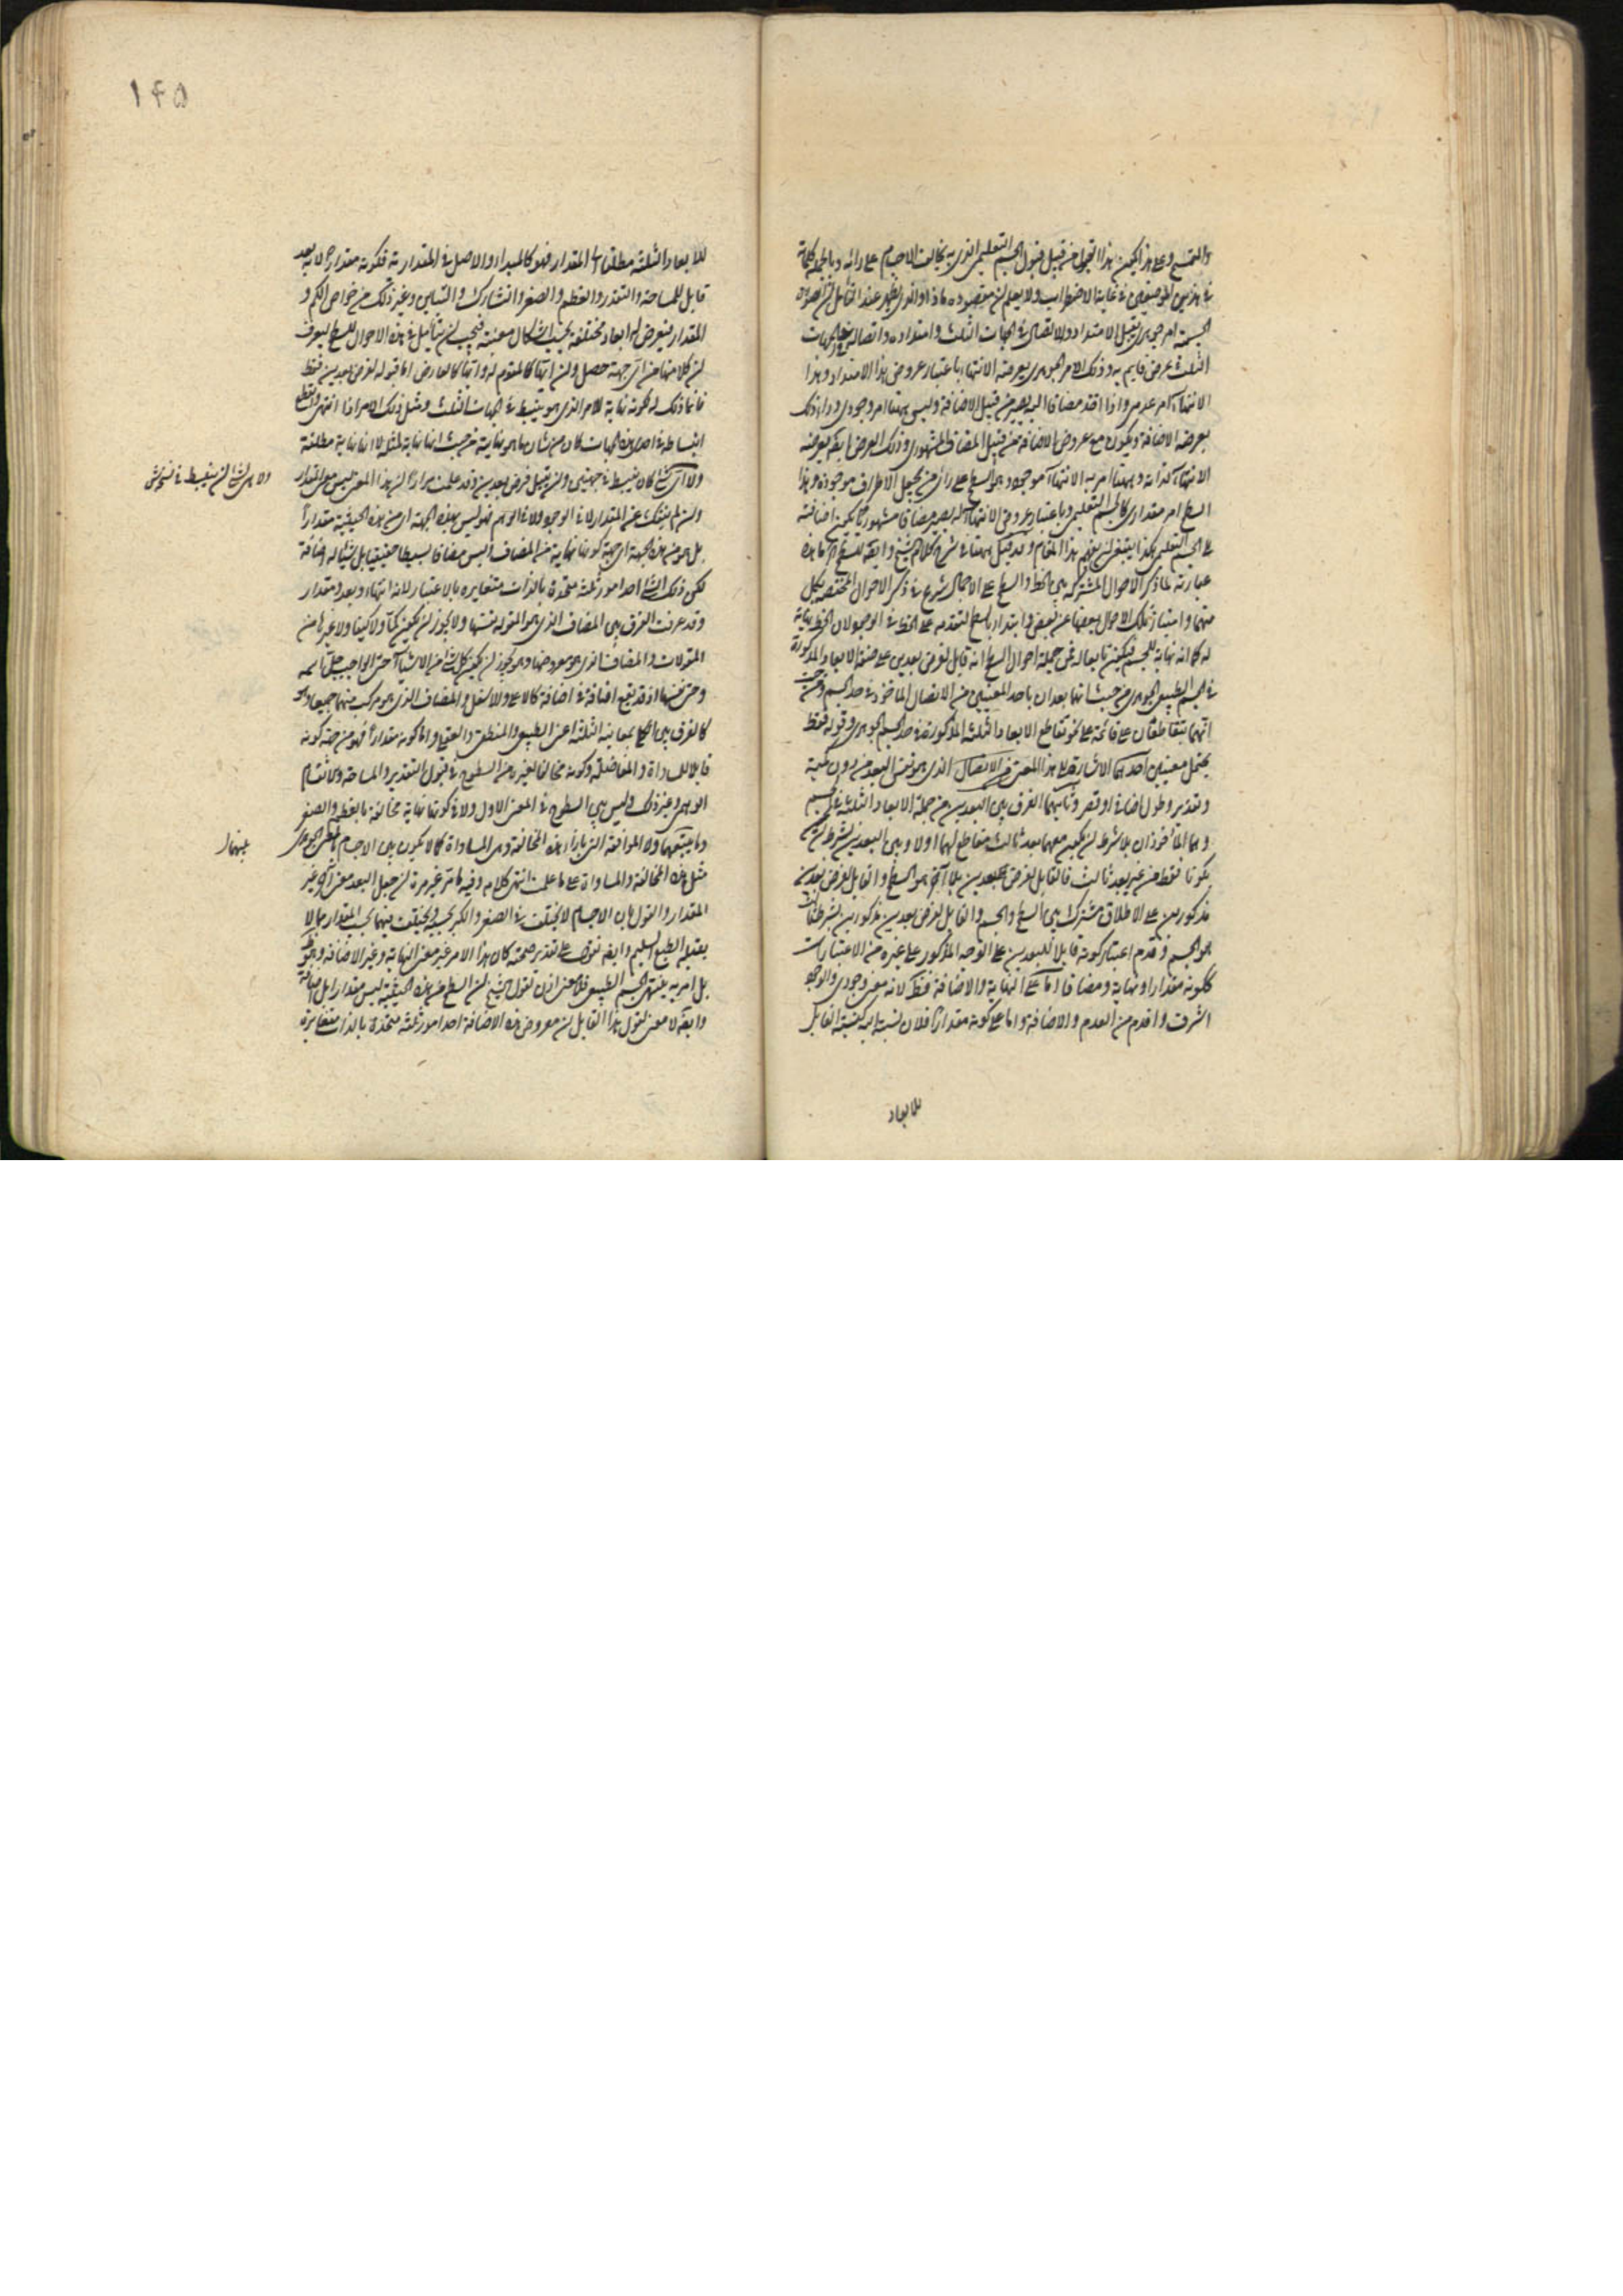 والتقسيم وعلى هذا يكون هذا القبول من قبيل قبول الجسم التعليمي الذي به يخالف الاجسام على رائه وبالجملة كلماته
في هذين الموضعين في غاية الاضطراب ولا يعلم ان مقصوده ماذا والذي يظهر عند التأمل ان الصورة
الجسمية امر جوهري يقبل الامتداد والاتصال في الجهات الثلث وامتداده واتصاله في الجهات
الثلث عرض قايم به وذلك الامر الجوهري يعرضه الانتهاء باعتبار عروض هذا الامتداد وهذا
الانتهاء امر عدمي واذا اخذ مضافا اليه يصير من قبيل الاضافة وليس ههنا امر وجودي وراء ذلك
يعرضه الاضافة ويكون مع عروض الاضافة من قبيل المضاف المشهوري وذلك العرض ايضا يعرضه
الانتهاء لذاته وههنا امر به الانتهاء موجود وهو السطح على رأي من يجعل الاطراف موجودة وهذا
السطح امر مقداري كالجسم التعليمي وباعتبار عروض الانتهاء له يصير مضافا مشهوريا
على الجسم التعليمي هكذا ينبغي ان يفهم هذا المقام وقد قيل ههنا في شرح كلام الشيخ
عبارته لما ذكر الاحوال المشتركة بين الخط والسطح على الاجمال شرع في ذكر الاحوال المختصة بكل
منهما وامتياز تلك الاحوال بعضها عن بعض وابتدأ بالسطح لتقدمه على الخط في الوجود لان الخط نهاية
له كما انه نهاية للجسم فيكون تابعا له فمن جملة احوال السطح انه قابل لفرض بعدين على صفة الابعاد المذكورة
في الجسم الطبيعي الجوهري من حيث انهما بعدان باحد المعنيين من الاتصال الماخوذ في حد الجسم ومن حيث
انهما يتقاطعان على قائمة على نحو تقاطع الابعاد الثلثة المذكورة في حد الجسم الجوهري وقوله فقط
يحتمل معنيين احدهما الاشارة الى هذا المعنى من الاتصال الذي هو نفس البعد من دون كمية
وتقدير وطول اضافي او قصر وثانيهما الفرق بين البعدين من جملة الابعاد الثلثة في الجسم
وهما المأخوذان بلا شرط ان يكون معهما بعد ثالث مقاطع لهما اولا وبين البعدين بشرط ان
يكونا فقط من غير بعد ثالث فالقابل لفرض البعدين بلا آخر هو السطح والقابل لفرض بعدين
مذكورين على الاطلاق مشترك بين السطح والجسم والقابل لفرض بعدين مذكورين بشرط ثالث
هو الجسم وقدم اعتبار كونه قابلا للبعدين على الوجه المذكور على غيره من الاعتبارات
ككونه مقدارا ونهاية ومضافا اما على النهاية والاضافة فظ لانه معنى وجودي والوجود
اشرف واقدم من العدم والاضافة واما على كونه مقدارا فلان نسبته اليه كنسبة القابل
للابعاد
١٤٥
للابعاد الثلثة مطلقا الى المقدار فهو كالمبدا والاصل في المقدارية فكونه مقدارا لانه بعد
قابل للمساحة والتقدير والعظم والصغر والتشارك والتباين وغير ذلك من خواص الكم و
المقدار فيعرض له ابعاد مختلفة بحسب اشكال معينة فيجب ان يتأمل في هذه الاحوال للسطح ليعرف
ان كلا منها من اي جهة حصل وان ايها كالمقوم له وايها كالعارض اما قبوله لفرض بعدين فقط
فانما ذلك له لكونه نهاية للامر الذي هو ينبسط في الجهات الثلث ومثل ذلك الامر اذا انتهى وانقطع
انبساطه في احدى هذه الجهات كان من شان ما هو نهاية من حيث انها نهاية لمثله لا انها نهاية مطلقة
ولا اي شئ كان ينبسط في جهتين وان يقبل فرض بعدين وقد علمت مرارا ان هذا المعنى ليس معنى المقدار
والامر الشئ الذي ينبسط في نسخة ش
وان لم ينفك عن المقدار لا في الوجود ولا في الوهم فهو ليس بهذه الجهة اي من هذه الحيثية مقدارا
بل هو من هذه الجهة اي جهة كونها نهاية من المضاف وليس مضافا بسيطا حقيقيا بل شئ له اضافة
لكن ذلك الشئ احد امور ثلثة متحدة بالذات متغايرة بالاعتبار لانه انتهاء وبعد ومقدار
وقد عرفت الفرق بين المضاف الذي هو المقولة نفسها ولا يجوز ان يكون كما ولا كيفا ولا غيرها من
المقولات والمضاف الذي هو معروضها وهو يجوز ان يكون كل شئ من الاشياء حتى الواجب جل اسمه
وحتى نفسها اذ قد يقع اضافة في اضافة كالاعلى والاسفل والمضاف الذي هو مركب منهما جميعا وهو
كالفرق بين الكلي بمعانيه الثلثة اعني الطبيعي والمنطقي والعقلي واما كونه مقدارا فهو من جهة كونه
قابلا للمساواة والمفاضلة وكونه مخالفا لغيره من السطوح في قبول التقدير والمساحة والانقسام
الوهمي وغير ذلك وليس بين السطوح في المعنى الاول ولا في كونها نهاية مخالفة بالعظم والصغر
وما يتبعهما ولا الموافقة التي بازاء هذه المخالفة وهي المساواة كما لا يكون بين الاجسام بالمعنى الجوهري
بينهما
مثل هذه المخالفة والمساواة على ما علمت انتهى كلامه وفيه ما مر غير مرة ان جعل البعد معنى آخر غير
المقدار والقول بان الاجسام لا يختلف في الصغر والكبر بحسبه ويختلف فيهما بحسب المقدار مما لا
يقبله الطبع السليم وايضا نقول على تقدير صحته كان هذا الامر غير معنى النهاية وغير الاضافة وهو
بل امر به ينتهي الجسم الطبيعي فلا معنى اذن لقول الشيخ ان السطح من هذه الحيثية ليس مقدارا بل مضافا
وايضا لا معنى لقول هذا القائل ان معروض هذه الاضافة احد امور ثلثة متحدة بالذات متغايرة